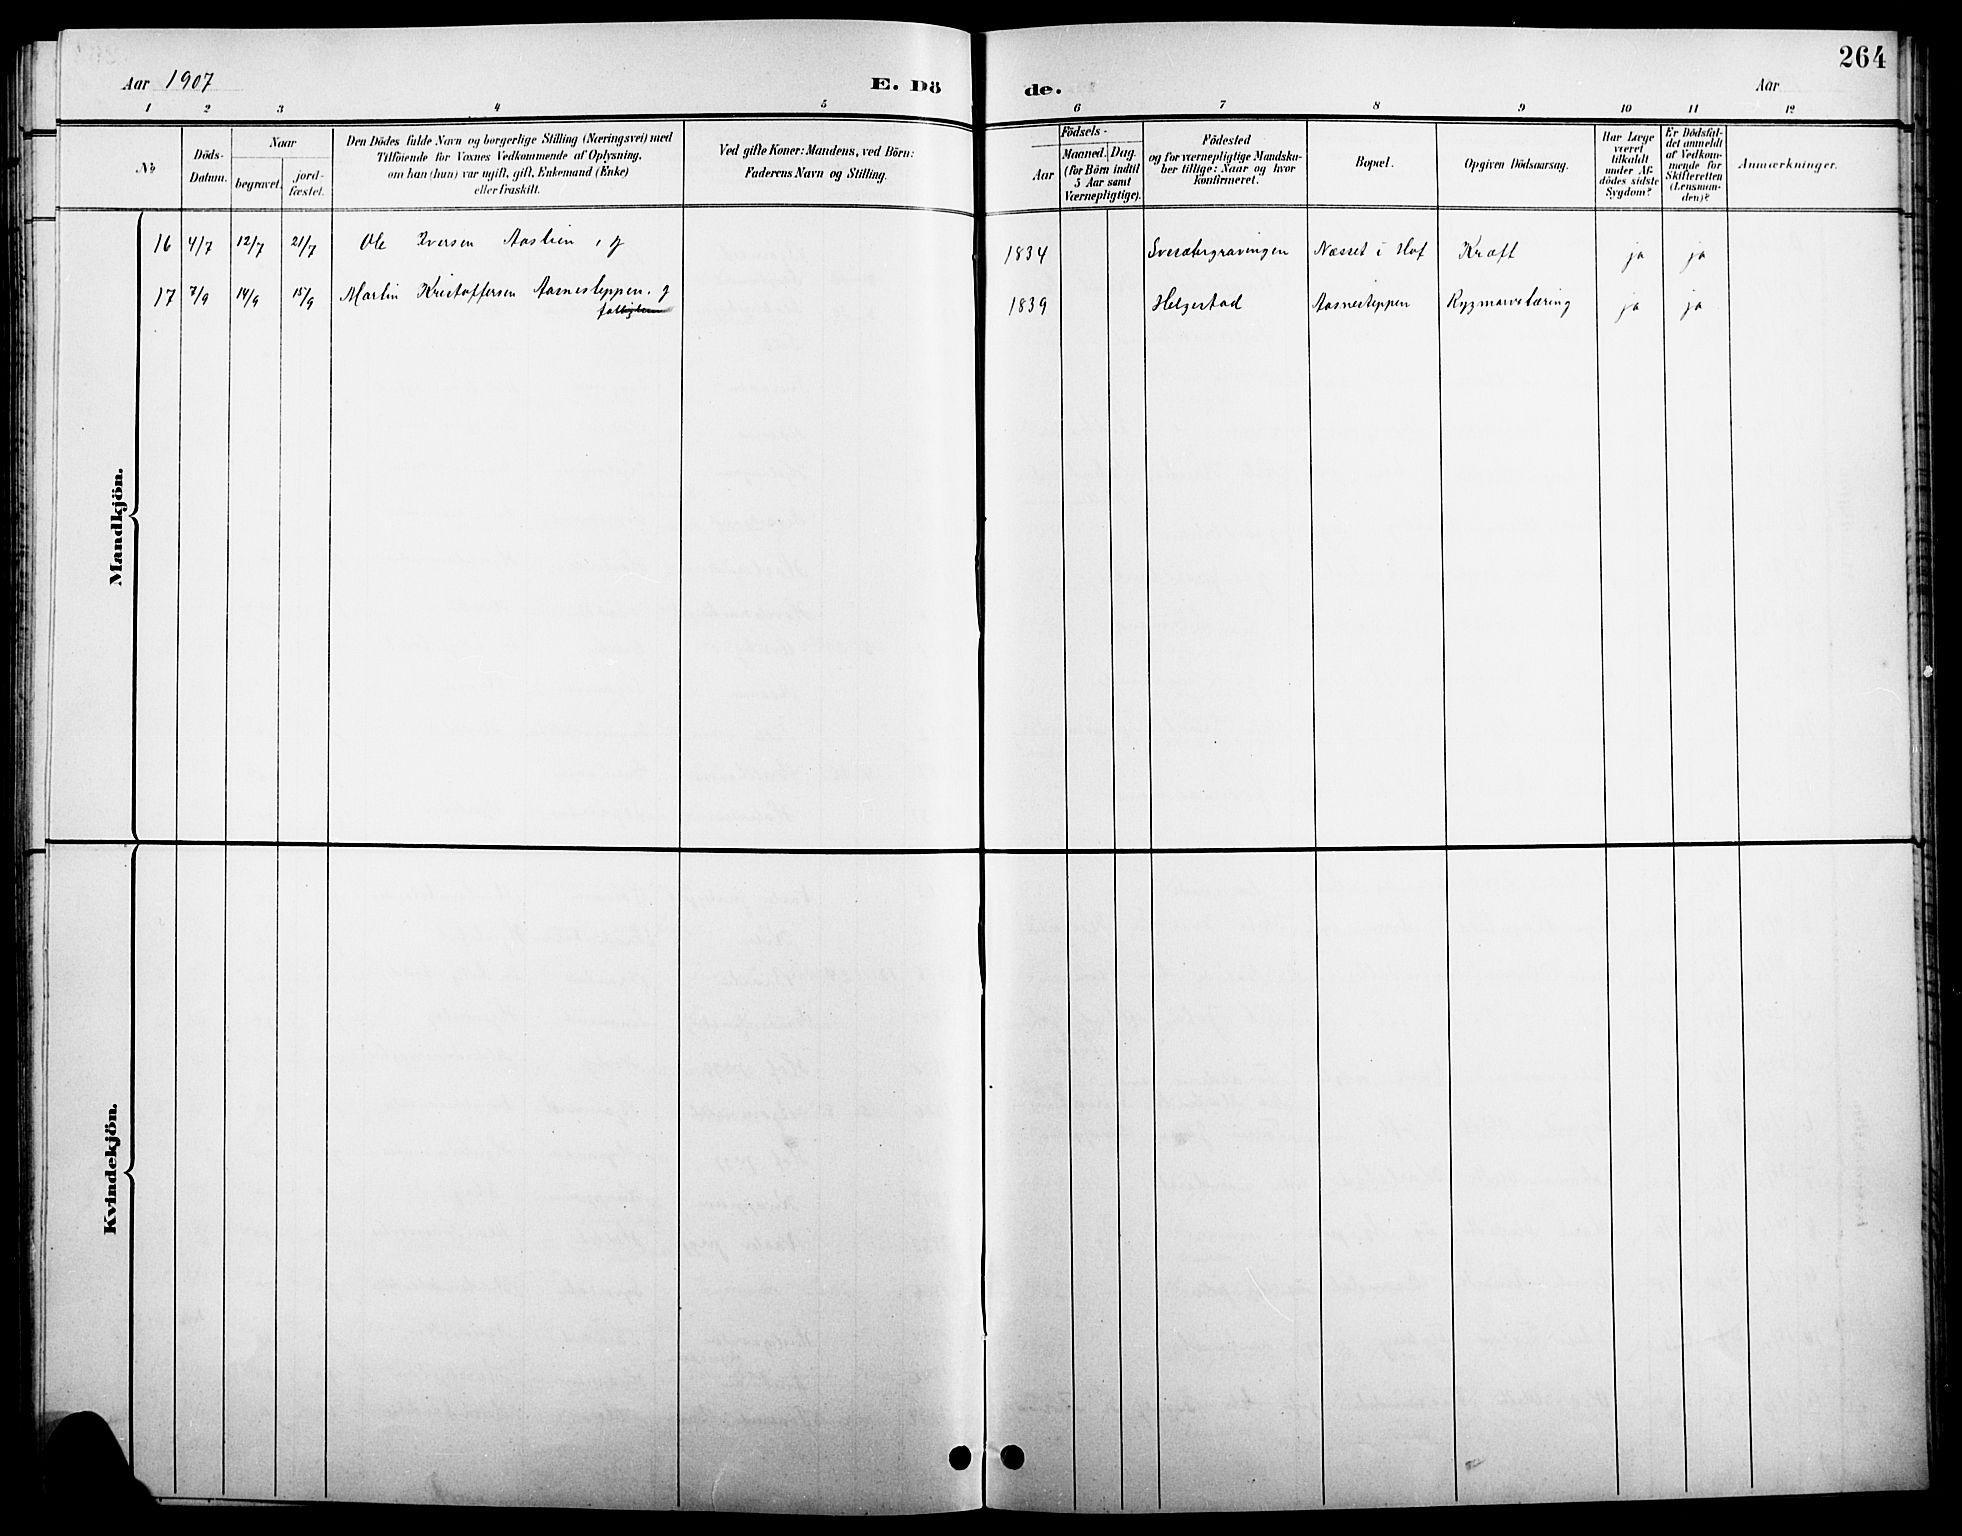 264
Aar 1907
E. Dö
de.
Aar
1 2 3 4 5 6 7 8 9 10 11 12
No
Döds-
Datum.
Naar
begravet.
jord-
fæstet.
Den Dödes fulde Navn og borgerlige Stilling (Næringsvei) med
Tilföiende for Voxnes Vedkommende af Oplysning,
om han (hun) var ugift, gift, Enkemand (Enke)
eller fraskilt.
Ved gifte Koner: Mandens, ved Börn:
Faderens Navn og Stilling.
Födsels-
Aar
Maaned. Dag.
(for Börn indtil
5 Aar samt
Værnepligtige).
Födested
og for værnepligtige Mandska-
ber tillige: Naar og hvor
konfirmeret.
Bopæl.
Opgiven Dödsaarsag.
Har Læge
været
tilkaldt
under Af-
dödes sidste
Sygdom?
Er Dödsfal-
det anmeldt
af Vedkom-
mende for
Skifteretten
(Lensman-
den)?
Anmærkninger.
Mandkjön.
16 4/7 12/7 21/7 Ole Iversen Aaslien, g 1834 Svesætergravingen Næsset i Hof Kræft ja ja
17 7/9 14/9 15/9 Martin Kristoffersen Aasnesteppen. g 1839 Helgestad Aasnesteppen Rygmarvstæring ja ja
Kvindekjön.